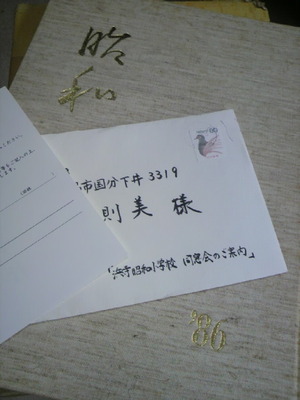 昭
和
市国分下井3319
則美様
「浜寺昭和小学校 同窓会のご案内」
'86